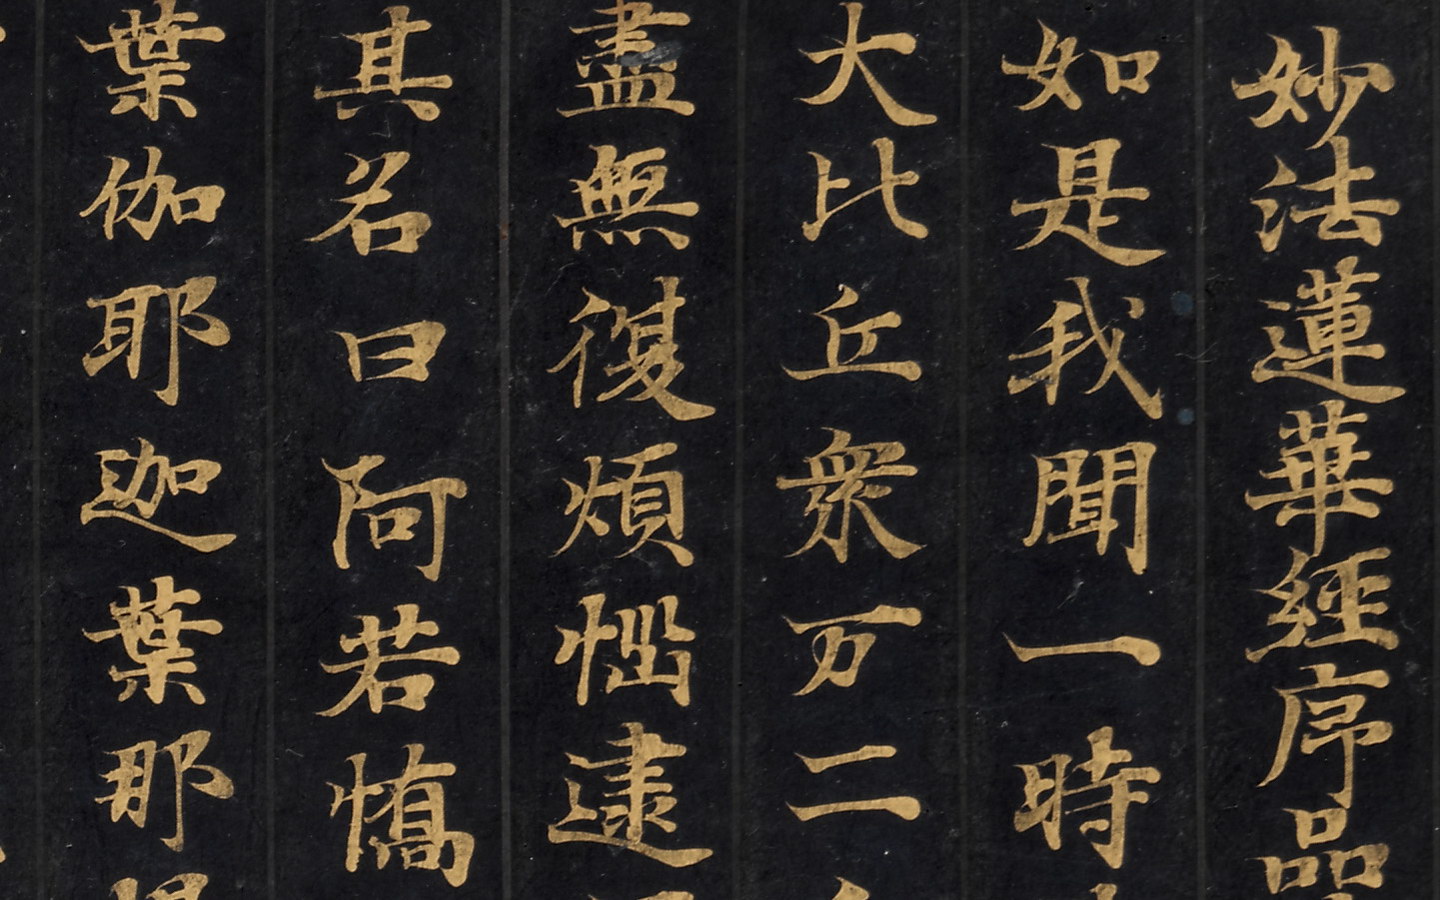 妙法蓮華經序品
如是我聞一時
大比丘衆万二
盡無復煩惱逮
其名曰阿若憍
葉伽耶迦葉那